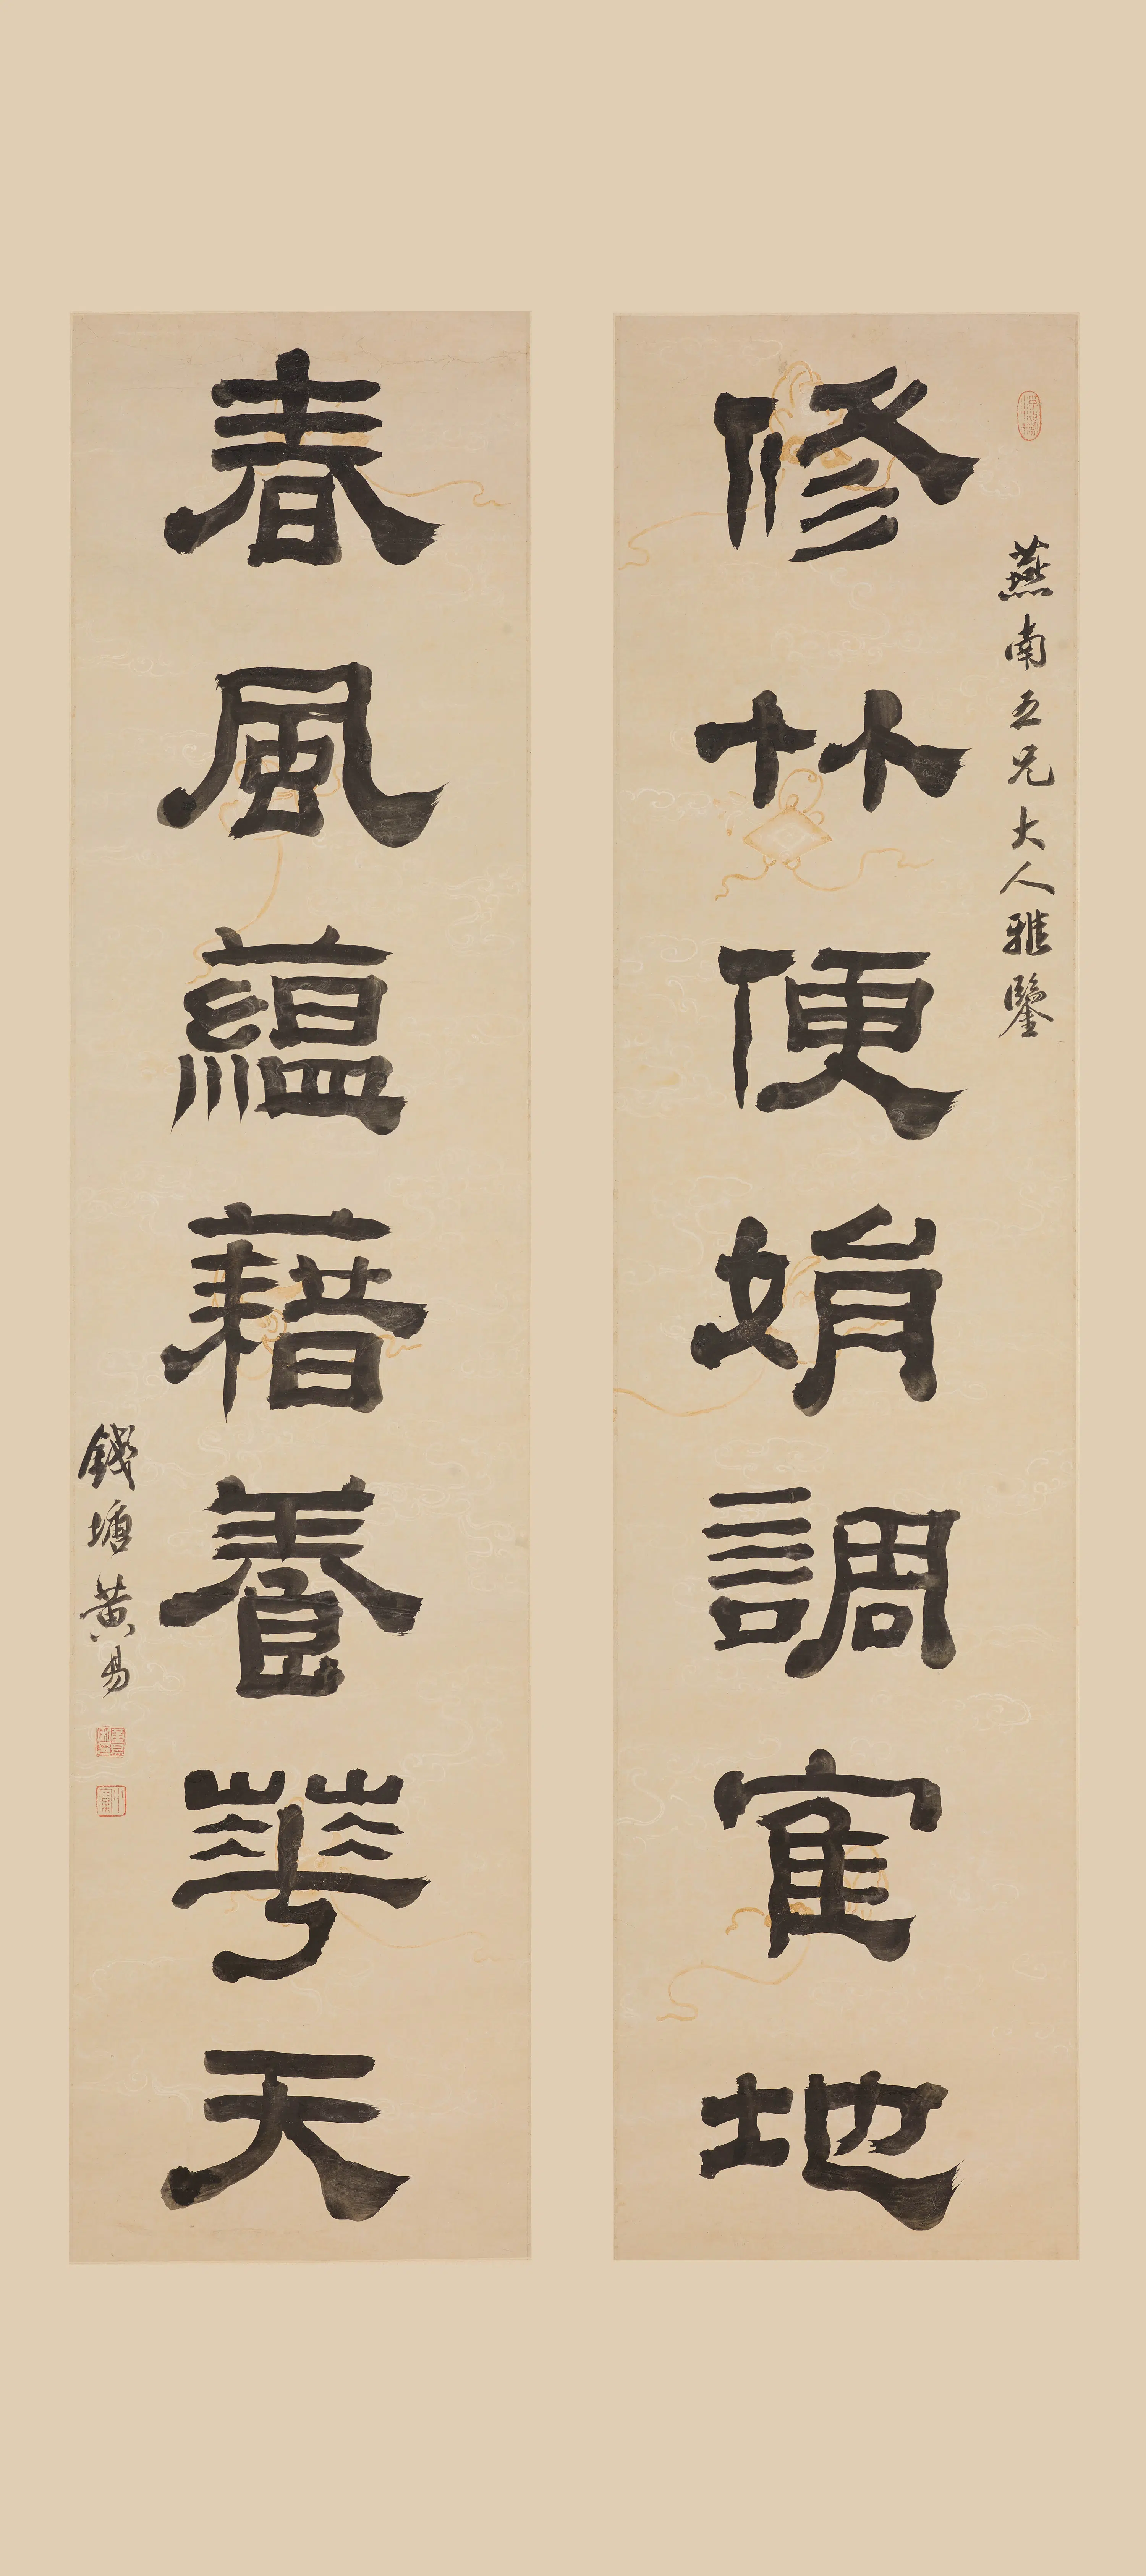 燕南五兄大人雅鑒
修竹便娟調寉地
春風蘊藉養華天
錢塘黃易